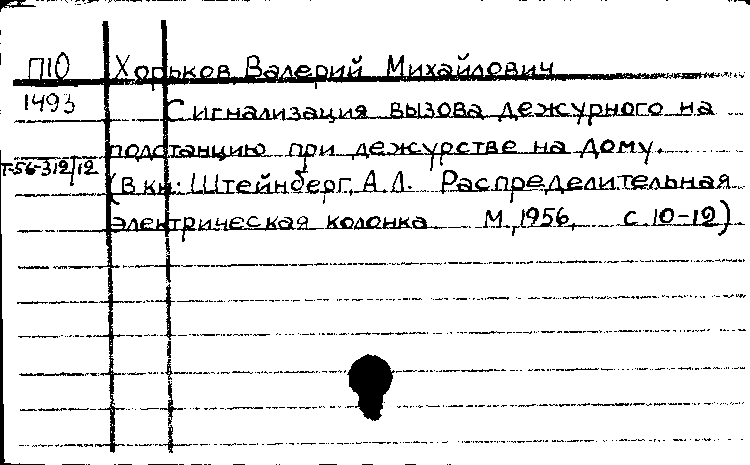 П10 Хорьков, Валерий Михайлович
1493 Сигнализация вызова дежурного на
подстанцию при дежурстве на дому.
Т-56-312/12
(В кн: Штейнберг, А.Л. Распределительная
электрическая колонка. М., 1956, с. 10-12)